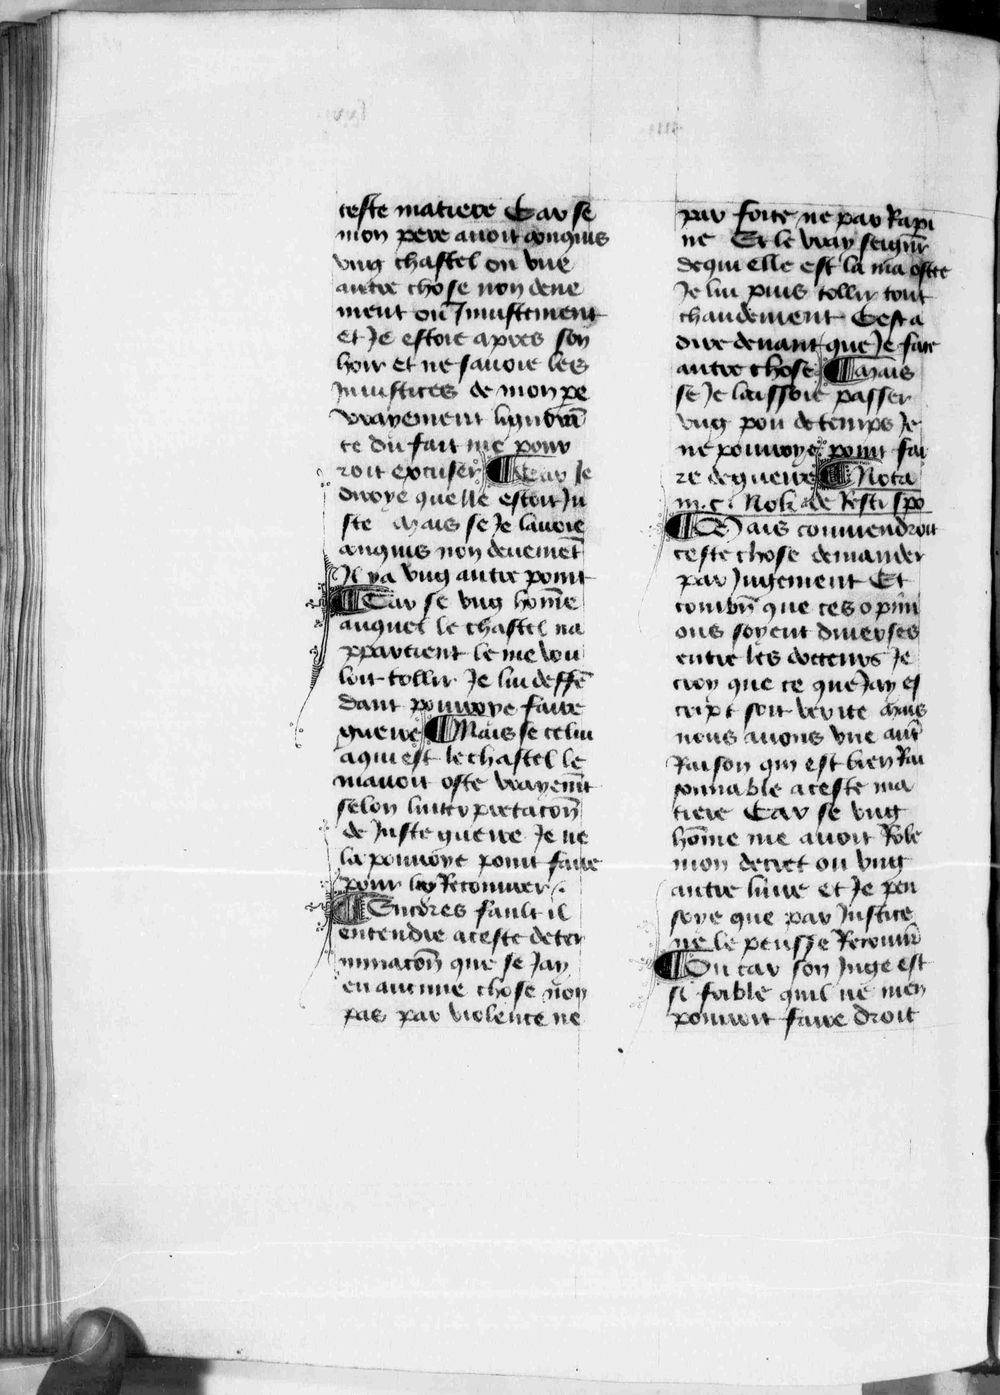 ceste matiere Car se
mon pere avoit conquis
ung chastel ou une
autre chose non deue
ment ou Iniustement
et Je estoie apres son
hoir et ne savoie les
Iniustices de mon pe
vrayement lignorā
ce du fait me pour
roit excuser ¶ Car Je
diroye quelle estoit Iu
ste Mais se Je lavoie
conquis non deuemēt
Il ya ung autre point
¶ Car se ung hōme
auquel le chastel na
ppartient le me vou
loit tollir Je lui deffē
dant pourroye faire
guerre ¶ Mais se celui
a qui est le chastel le
mavoit oste vrayemēt
selon linterpretacōn
de Iuste guerre Je ne
la pourroye point faire
pour le Recouvrer
¶ Encores fault il
entendre a ceste deter
minacōn que se Jay
en aucune chose non
pas par violence ne
par force ne par Rapi
ne Et le vray seignr̄
de qui elle est la ma ostee
Je lui puis tollir tout
chaudement Cest a
dire devant que Je face
autre chose ¶ Mais
se Je laissoie passer
ung pou de temps Je
ne pourroye point fai
re de guerre ¶ Nota
m. c. de Resti spo
¶ Mais convendroit
ceste chose demander
par Jugement Et
combn̄ que ces opini
ons soyent diverses
entre les docteurs Je
croy que ce que Jay es
cript soit verite Mais
nous avons une aut̄
Raison qui est bien Rai
sonnable a ceste ma
tiere Car se ung
hōme me avoit Robe
mon decret ou ung
autre livre et Je pen
soye que par Justice
ne le peusse Recouvr̄
¶ Ou car son Juge est
si foible quil ne men
pourroit faire droit